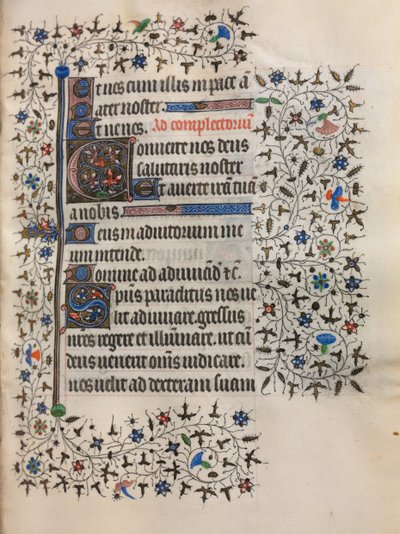 Et nes cum illis in pace ā
ater noster
Et nenes. Ad complectoriū
Conuerte nos deus
salutaris noster
Et auerte irā tuā
a nobis.
Deus in adiutorium me
um intende.
Domine ad adiuuād̄ ⁊c.
Sp̄us paraclitus nos ue
lit adiuuare. gressus
nr̄os regere et illuminare. ut cū
deus uenerit om̄s iudicare.
nos uelit ad dexteram suam